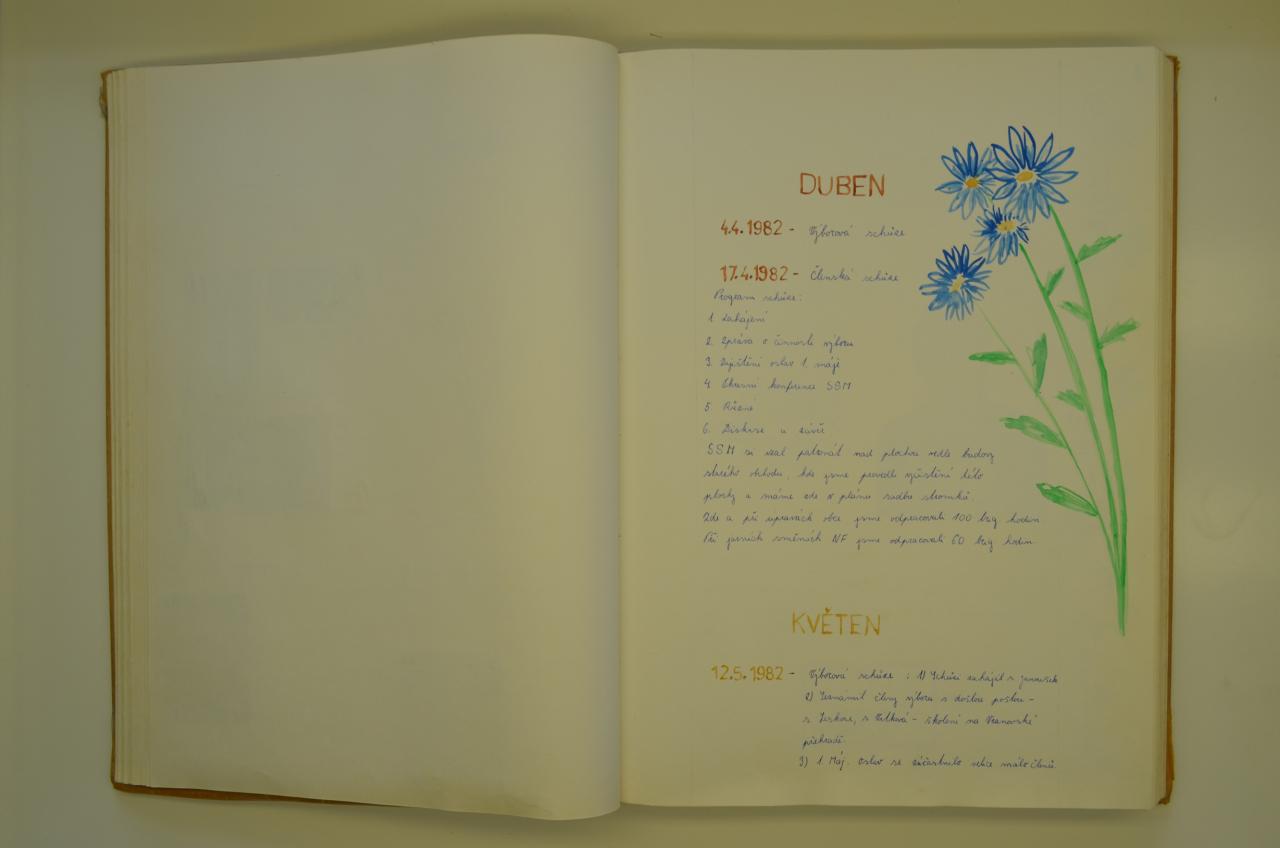 DUBEN
4.4.1982 - Výborová schůze
17.4.1982 - Členská schůze
Program schůze:
1. Zahájení
2. Zpráva o činnosti výboru
3. Zajištění oslav 1. máje
4. Okresní konference SSM
5. Různé
6. Diskuse a závěr
SSM si vzal patronát nad plochou vedle budovy
starého obchodu, kde jsme provedli vyčištění této
plochy a máme zde v plánu sadbu stromků.
Zde a při úpravách obce jsme odpracovali 100 brig hodin
Při jarních směnách NF jsme odpracovali 60 brig hodin.
KVĚTEN
12.5.1982 - Výborová schůze : 1) Schůzi zahájil s. Janoušek
2) Seznámil členy výboru s došlou poštou -
s. s. - školení na Vranovské
přehradě.
3) 1. Máj. oslav se zúčastnilo velice málo členů.